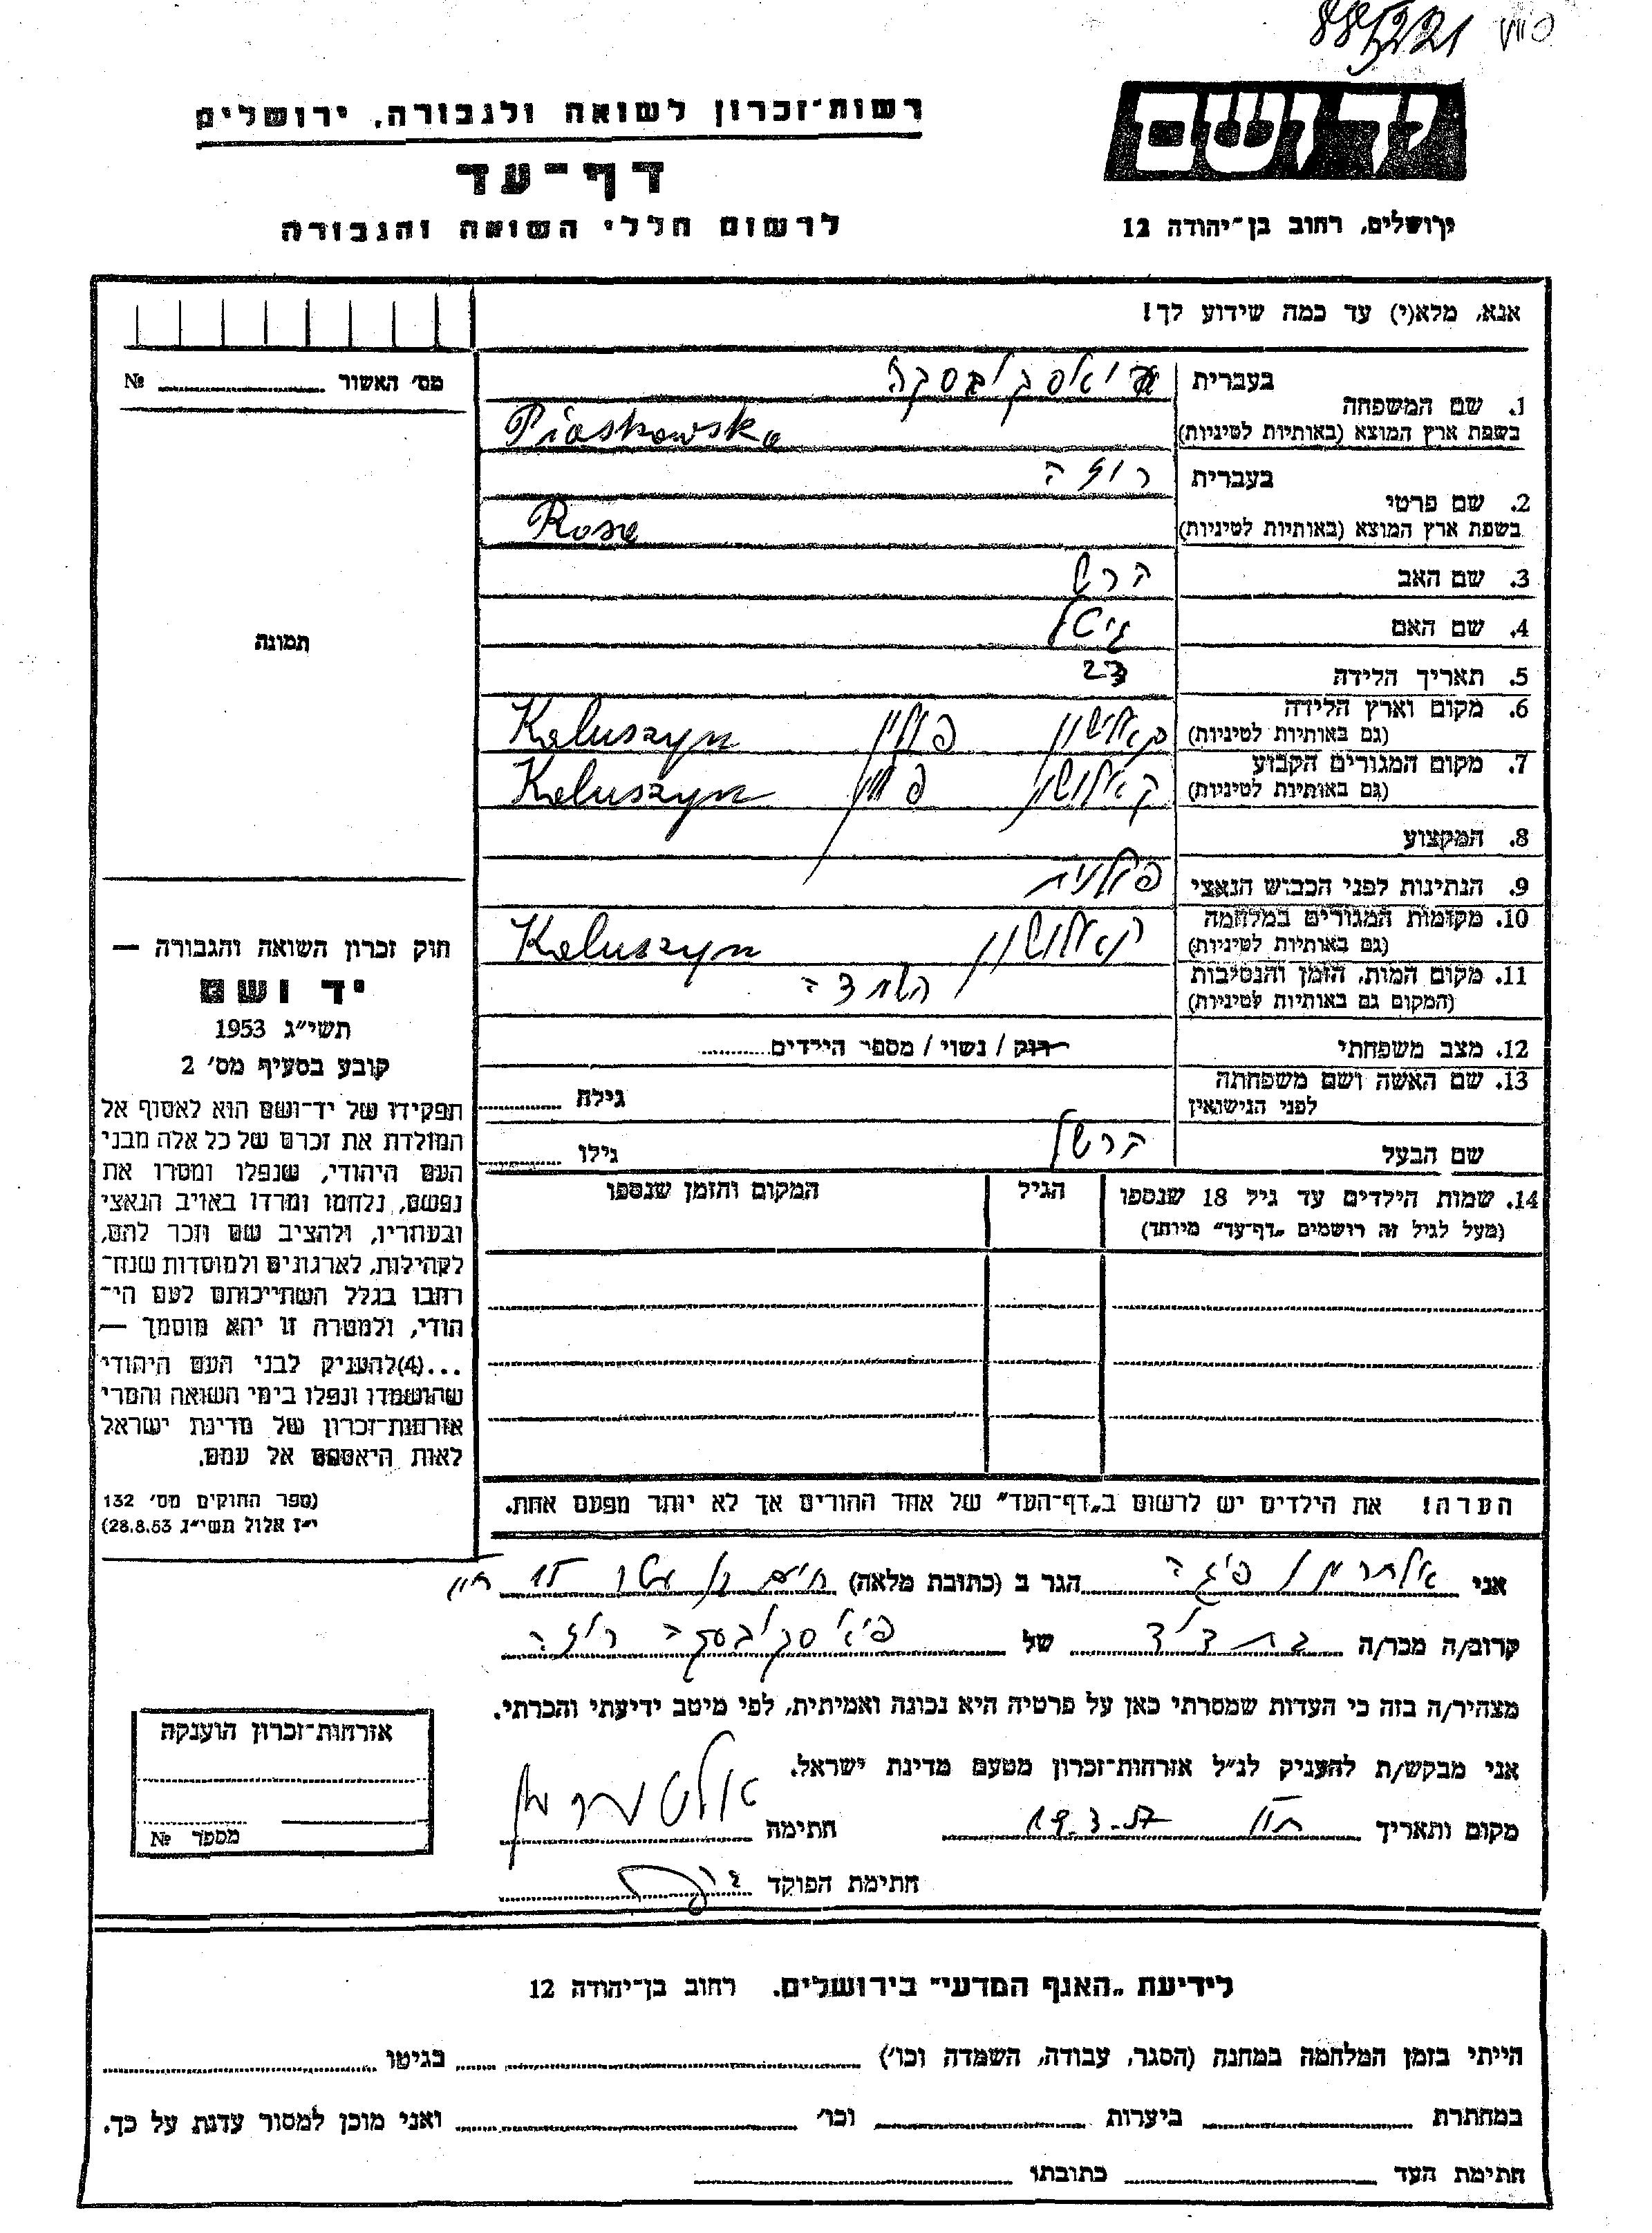 885221
יד ושם
ירושלים, רחוב בן־יהודה 12
רשות־זכרון לשואה ולגבורה, ירושלים
דף־עד
לרשום חללי השואה והגבורה
אנא, מלא(י) עד כמה שידוע לך!
מס׳ האשור № 
בעברית פיאסקובסקה
1. שם המשפחה
בשפת ארץ המוצא (באותיות לטיניות) Piaskowska
בעברית רוזה
2. שם פרטי
בשפת ארץ המוצא (באותיות לטיניות) Rosa
3. שם האב הרש
4. שם האם גיטל
5. תאריך הלידה 23
6. מקום וארץ הלידה
(גם באותיות לטיניות) קאלושין פולין Kaluszyn
7. מקום המגורים הקבוע
(גם באותיות לטיניות) קאלושין פולין Kaluszyn
8. המקצוע
9. הנתינות לפני הכבוש הנאצי פולנית
10. מקומות המגורים במלחמה
(גם באותיות לטיניות) קאלושין Kaluszyn
11. מקום המות, הזמן והנסיבות
(המקום גם באותיות לטיניות) השמדה
12. מצב משפחתי רוק / נשוי / מספר הילדים
13. שם האשה ושם משפחתה
לפני הנישואין גילה
שם הבעל הרשל גילו
14. שמות הילדים עד גיל 18 שנספו הגיל המקום והזמן שנספו
(מעל לגיל זה רושמים „דף־עד״ מיוחד)
הערה! את הילדים יש לרשום ב„דף־העד״ של אחד ההורים אך לא יותר מפעם אחת.
תמונה
חוק זכרון השואה והגבורה —
יד ושם
תשי״ג 1953
קובע בסעיף מס׳ 2
תפקידו של יד־ושם הוא לאסוף אל
המולדת את זכרם של כל אלה מבני
העם היהודי, שנפלו ומסרו את
נפשם, נלחמו ומרדו באויב הנאצי
ובעוזריו, ולהציב שם וזכר להם,
לקהילות, לארגונים ולמוסדות שנח־
רבו בגלל השתייכותם לעם הי־
הודי, ולמטרה זו יהא מוסמך —
...(4)להעניק לבני העם היהודי
שהושמדו ונפלו בימי השואה והמרי
אזרחות־זכרון של מדינת ישראל
לאות היאספם אל עמם.
(ספר החוקים מס׳ 132
י״ז אלול תשי״ג 28.8.53)
אני אלתרמן פיגה הגר ב (כתובת מלאה) חיים בן עטר 15
קרוב/ה מכר/ה בת דוד של פיאסקובסקה רוזה
מצהיר/ה בזה כי העדות שמסרתי כאן על פרטיה היא נכונה ואמיתית, לפי מיטב ידיעתי והכרתי.
אני מבקש/ת להעניק לנ״ל אזרחות־זכרון מטעם מדינת ישראל.
מקום ותאריך 19.3.57 חתימה אלטרמן
חתימת הפוקד
אזרחות־זכרון הוענקה
מספר №
לידיעת „האנף המדעי״ בירושלים. רחוב בן־יהודה 12
הייתי בזמן המלחמה במחנה (הסגר, עבודה, השמדה וכו׳) בגיטו
במחתרת ביערות וכו׳ ואני מוכן למסור עדות על כך.
חתימת העד כתובתו